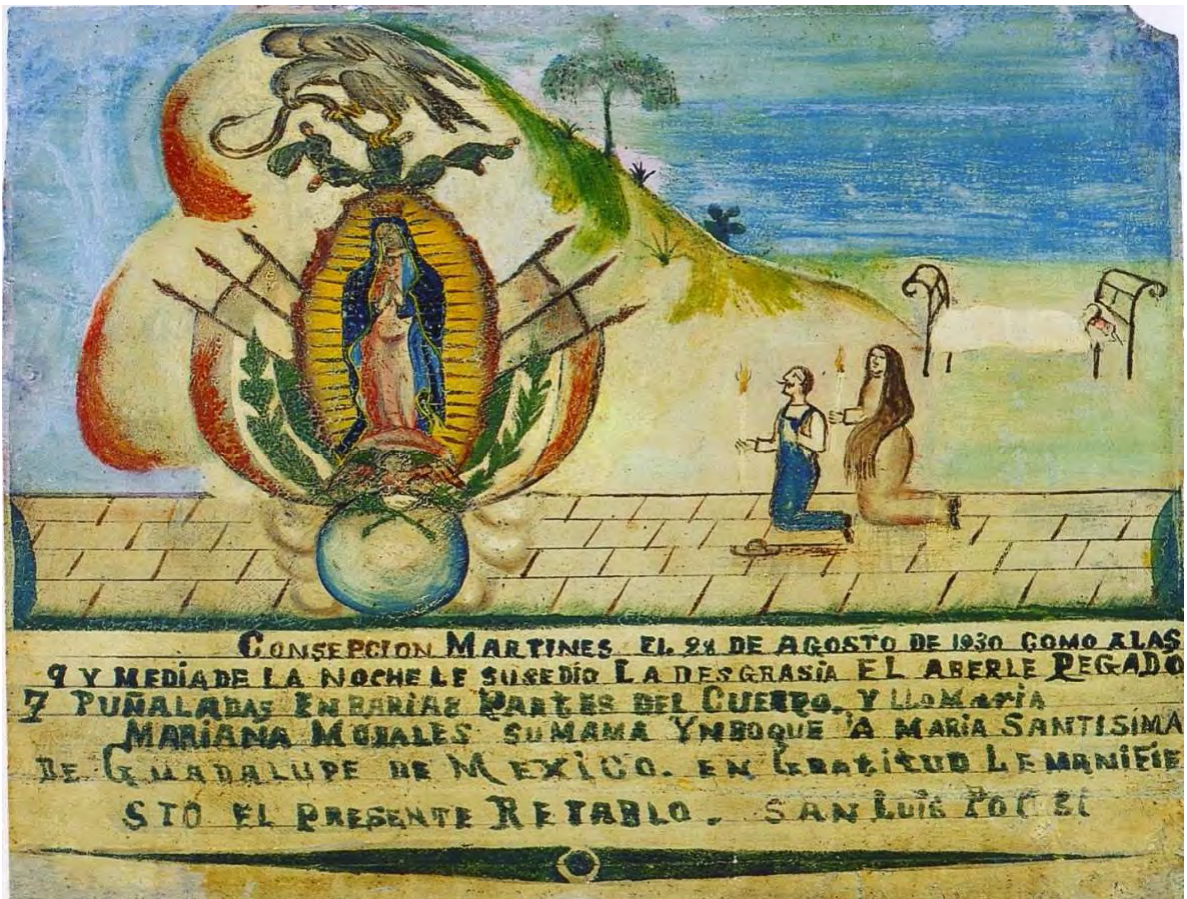 CONSEPCION MARTINES EL 28 DE AGOSTO DE 1930 COMO A LAS
9 Y MEDIA DE LA NOCHE LE SUSEDIO LA DESGRASIA EL ABERLE PEGADO
7 PUÑALADAS EN BARIAS PARTES DEL CUERPO. Y LLO MARIA
MARIANA MORALES SU MAMA YNBOQUE A MARIA SANTISIMA
DE GUADALUPE DE MEXICO. EN GRATITUD LE MANIFIE
STO EL PRESENTE RETABLO. SAN LUIS POT